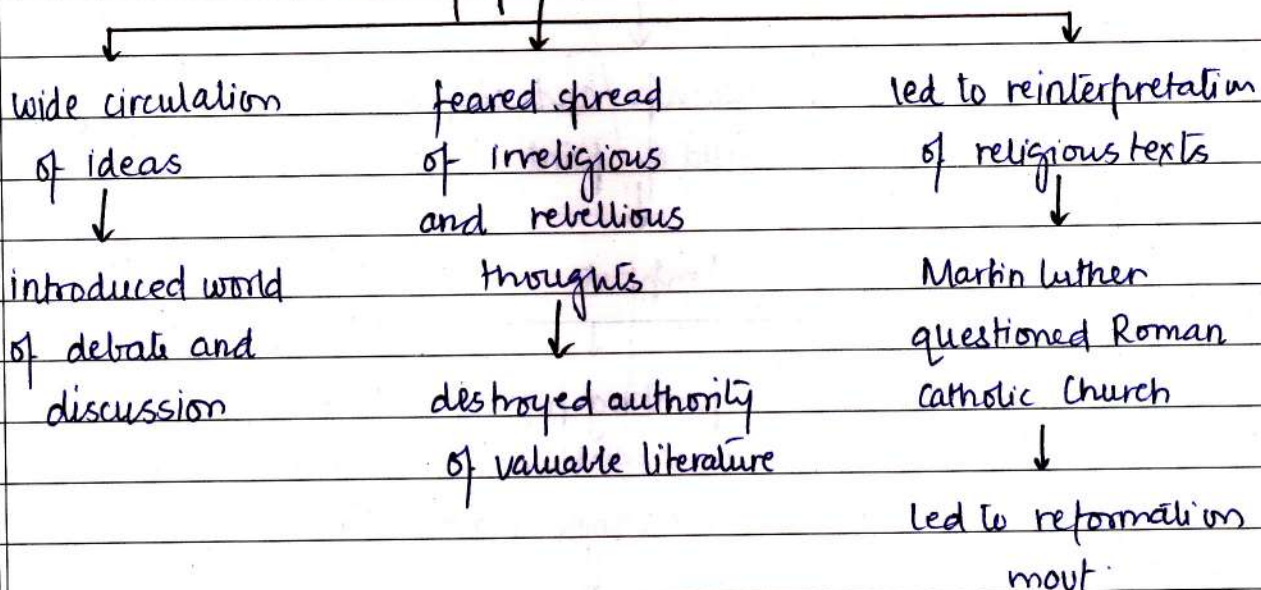 wide circulation
of ideas
introduced world
of debate and
discussion
feared spread
of irreligious
and rebellious
thoughts
destroyed authority
of valuable literature
led to reinterpretation
of religious texts
Martin luther
questioned Roman
Catholic Church
led to reformation
movt.